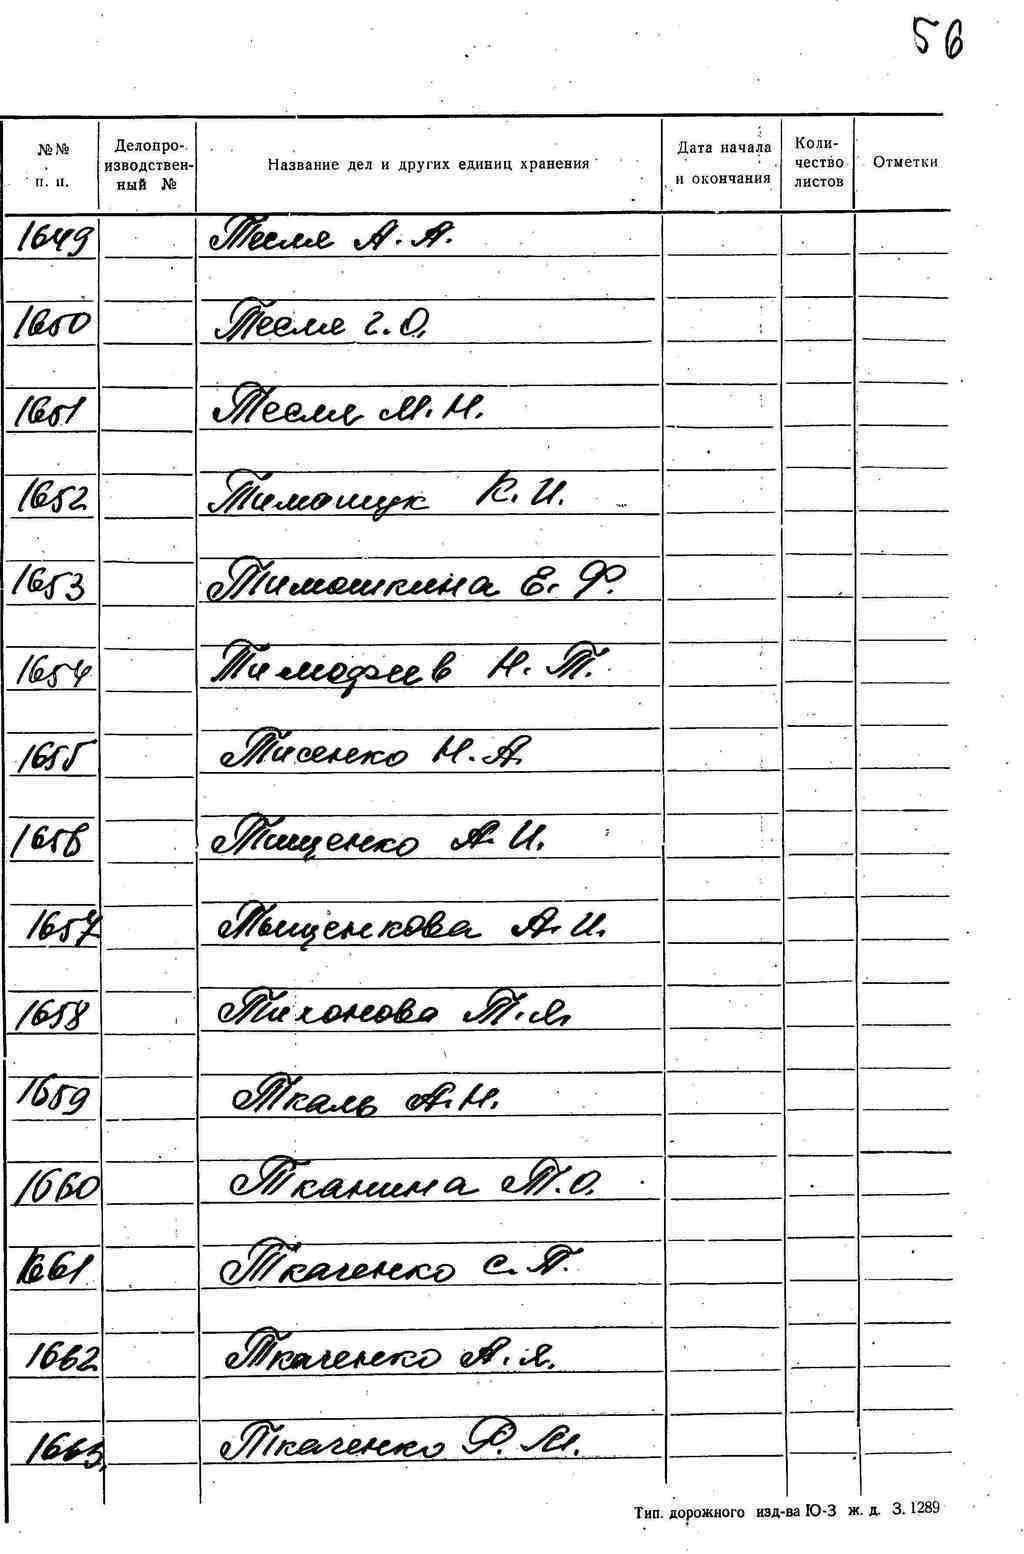 56
№№ п. п. Делопроизводственный № Название дел и других единиц хранения Дата начала и окончания Количество листов Отметки
1649 Тесля А. А.
1650 Тесля Г. О.
1651 Тесля М. Н.
1652 Тимощук К. И.
1653 Тимошкина Е. Ф.
1654 Тимофеев Н. Т.
1655 Тисенко Н. А.
1656 Тищенко А. И.
1657 Тыщенкова А. И.
1658 Тихонова Т. Я.
1659 Ткаль А. Н.
1660 Тканина Т. О.
1661 Ткаченко С. П.
1662 Ткаченко А. Я.
1663, Ткаченко Р. М.
Тип. дорожного изд-ва Ю-З ж. д. З. 1289